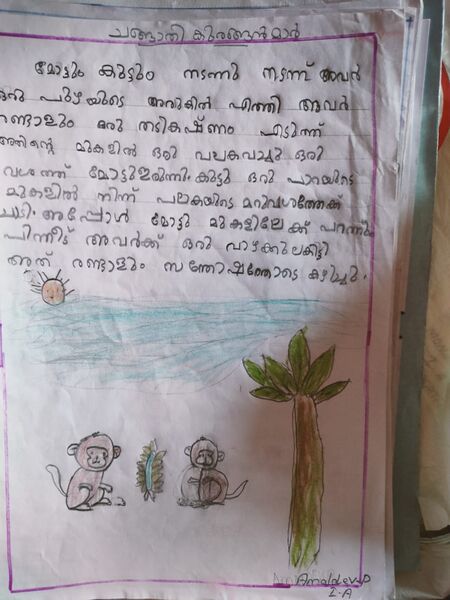 ചങ്ങാതി കുരങ്ങൻമാർ
മോട്ടും കുട്ടും നടന്നു നടന്ന് അവർ
ഒരു പുഴയുടെ അരുകിൽ എത്തി അവർ
രണ്ടാളും ഒരു തടികഷ്ണം എടുത്ത്
അതിന്റെ മുകളിൽ ഒരു പലകവച്ചു ഒരു
വശത്ത് മോട്ടുഇരുന്നു. കുട്ടു ഒറു പാറയുടെ
മുകളിൽ നിന്ന് പലകയുടെ മറുവശത്തേക്ക്
ചാടി. അപ്പോൾ മോട്ടു മുകളിലേക്ക് പറന്നു.
പിന്നീട് അവർക്ക് ഒരു വാഴക്കുലകിട്ടി
അത് രണ്ടാളും സന്തോഷത്തോടെ കഴിച്ചു.
Amaldev.P
2-A